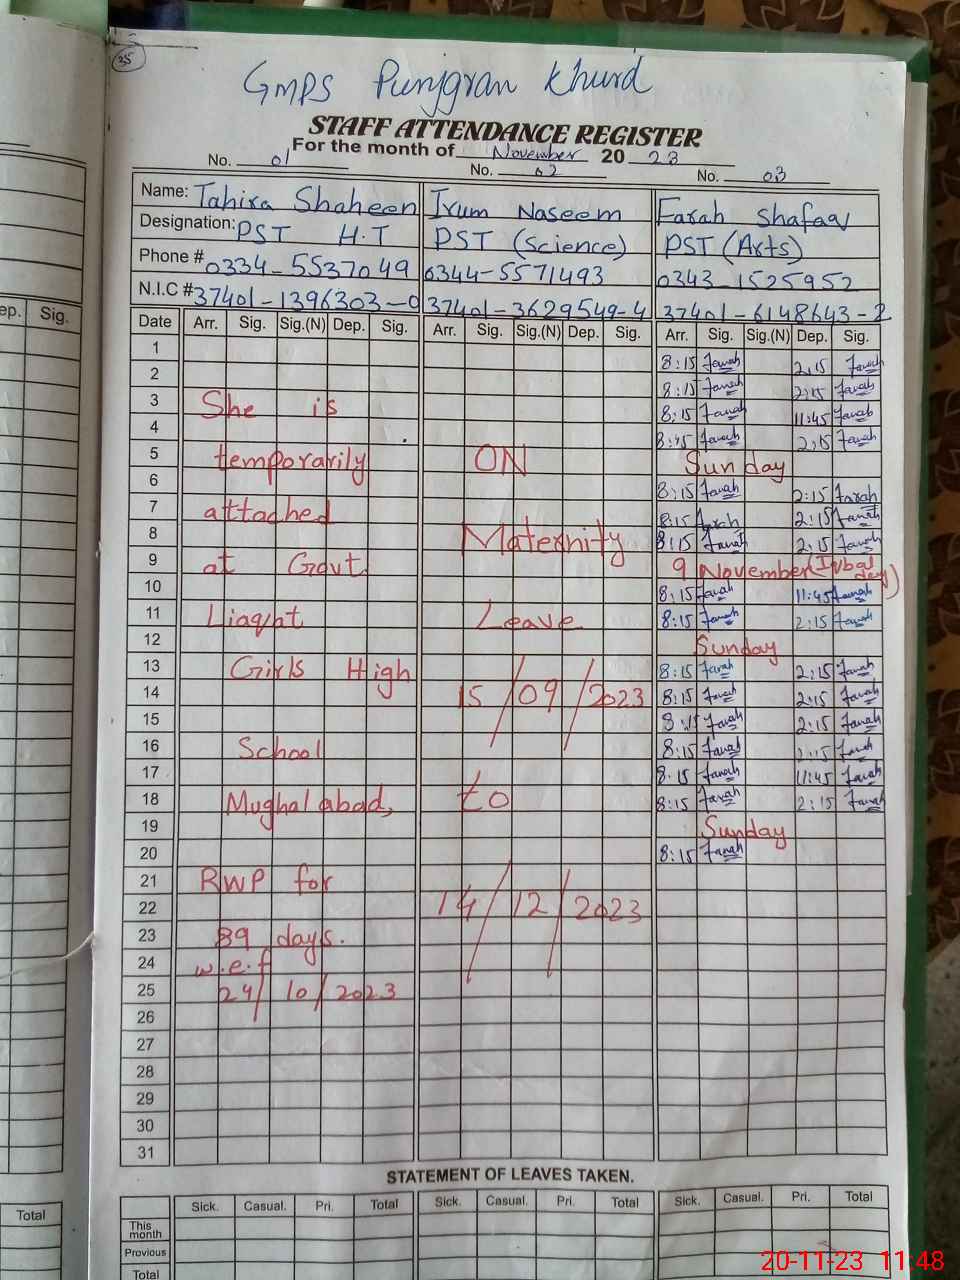 35
GMPS Punjgran Khurd
STAFF ATTENDANCE REGISTER
For the month of November 20 23
No. 01 No. 02 No. 03
Name: Tahira Shaheen Irum Naseem Farah Shafaav
Designation: PST H.T PST (Science) PST (Arts)
Phone # 0334-5537049 0344-5571493 0343-1525952
N.I.C # 37401-1396303-0 37401-3629549-4 37401-6148643-2
ep. Sig. Date Arr. Sig. Sig.(N) Dep. Sig. Arr. Sig. Sig.(N) Dep. Sig. Arr. Sig. Sig.(N) Dep. Sig.
1 8:15 Farah 2:15 Farah
2 8:15 Farah 2:15 Farah
3 She is 8:15 Farah 11:45 Farah
4 8:15 Farah 2:15 Farah
5 temporarily ON Sunday
6 8:15 Farah 2:15 Farah
7 attached 8:15 Farah 2:15 Farah
8 Maternity 8:15 Farah 2:15 Farah
9 at Govt. 9 November (Iqbal day)
10 8:15 Farah 11:45 Farah
11 Liaqat Leave 8:15 Farah 2:15 Farah
12 Sunday
13 Girls High 8:15 Farah 2:15 Farah
14 15/09/2023 8:15 Farah 2:15 Farah
15 8:15 Farah 2:15 Farah
16 School 8:15 Farah 2:15 Farah
17 8:15 Farah 11:45 Farah
18 Mughalabad, to 8:15 Farah 2:15 Farah
19 Sunday
20 8:15 Farah
21 RWP for
22 14/12/2023
23 89 days.
24 w.e.f
25 24/10/2023
26
27
28
29
30
31
STATEMENT OF LEAVES TAKEN.
Total Sick. Casual. Pri. Total Sick. Casual. Pri. Total Sick. Casual. Pri. Total
This month
Previous
Total
20-11-23 11:48